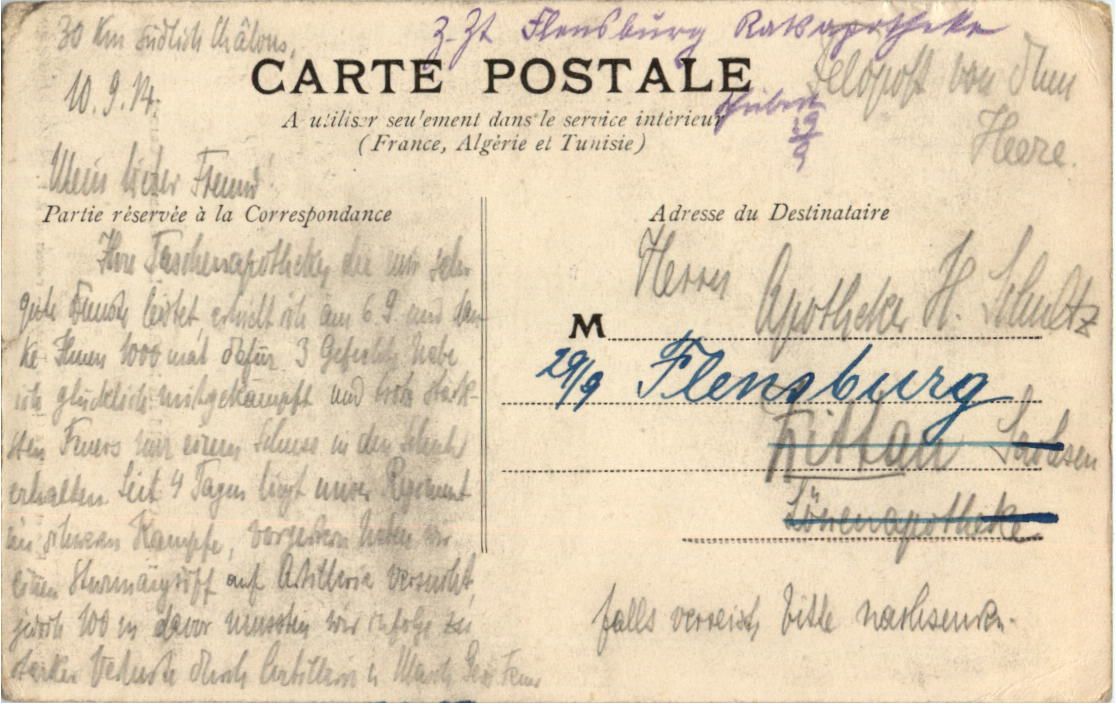 30 Km südlich Châlons,
10. 9. 14.
z. Zt Flensburg Ratsapotheke
Feldpost von Heere.
CARTE POSTALE
19/9
A utiliser seulement dans le service intérieur
(France, Algérie et Tunisie)
Mein lieber Freund!
Partie réservée à la Correspondance
Ihre Taschenapotheke, die mir sehr
gute Dienste leistet, erhielt ich am 6. 9. und dan-
ke Ihnen 1000 mal dafür. 3 Gefechte habe
ich glücklich mitgekämpft und trotz stärk-
sten Feuers nur einen Schuss in den Schuh
erhalten. Seit 4 Tagen liegt unser Regiment
im schweren Kampfe, vorgestern haben wir
einen Sturmangriff auf Artillerie versucht,
jedoch 100 m davor mussten wir infolge zu
starker Verluste durch Artillerie u. Masch. Gew. Feuer
Adresse du Destinataire
Herrn
Apotheker H. Schultz
M
29/9 Flensburg
Zittau Sachsen
Löwenapotheke
falls verreist, bitte nachsenden.